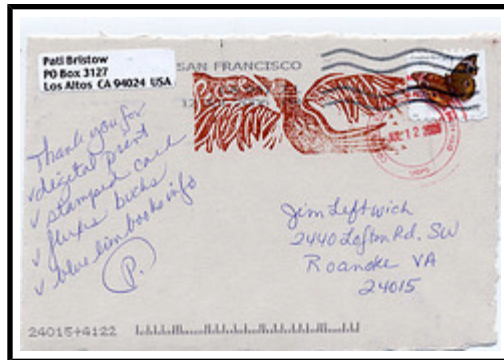 Pati Bristow
PO Box 3127
Los Altos CA 94024 USA
SAN FRANCISCO
12 2008
Thank you for
✓ digital print
✓ stamped card
✓ fluxus bucks
✓ blue lion books info
P.
Jim Leftwich
2440 Lofton Rd. SW
Roanoke VA
24015
24015+4122